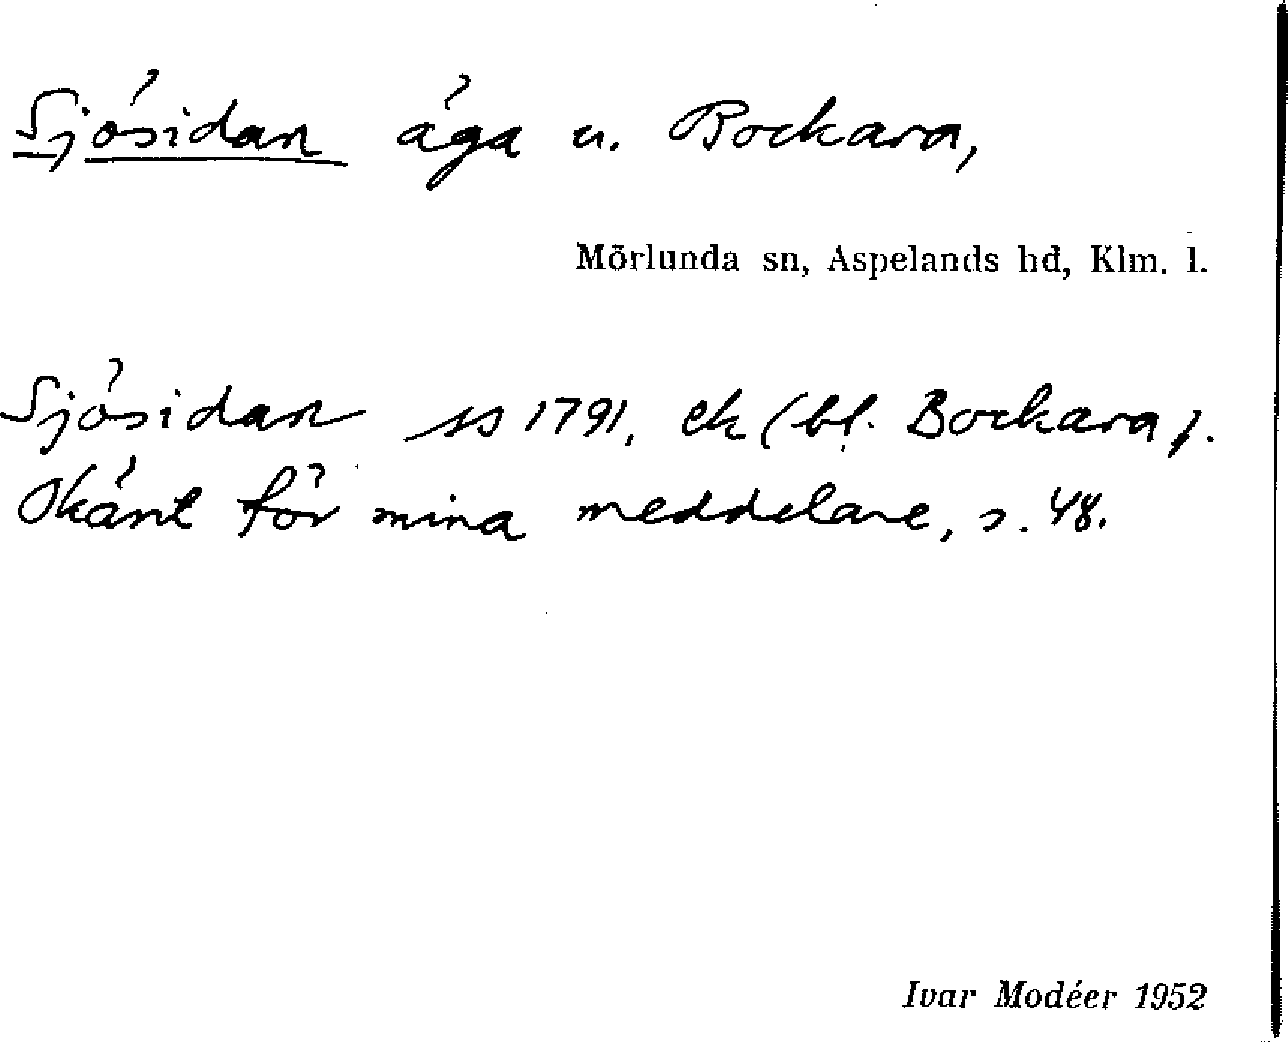 Sjösidan äga u. Bockara,
Mörlunda sn, Aspelands hd, Klm. l.
Sjösidan ss 1791, ek (bl. Bockara).
Okänt för mina meddelare, s. 48.
Ivar Modéer 1952